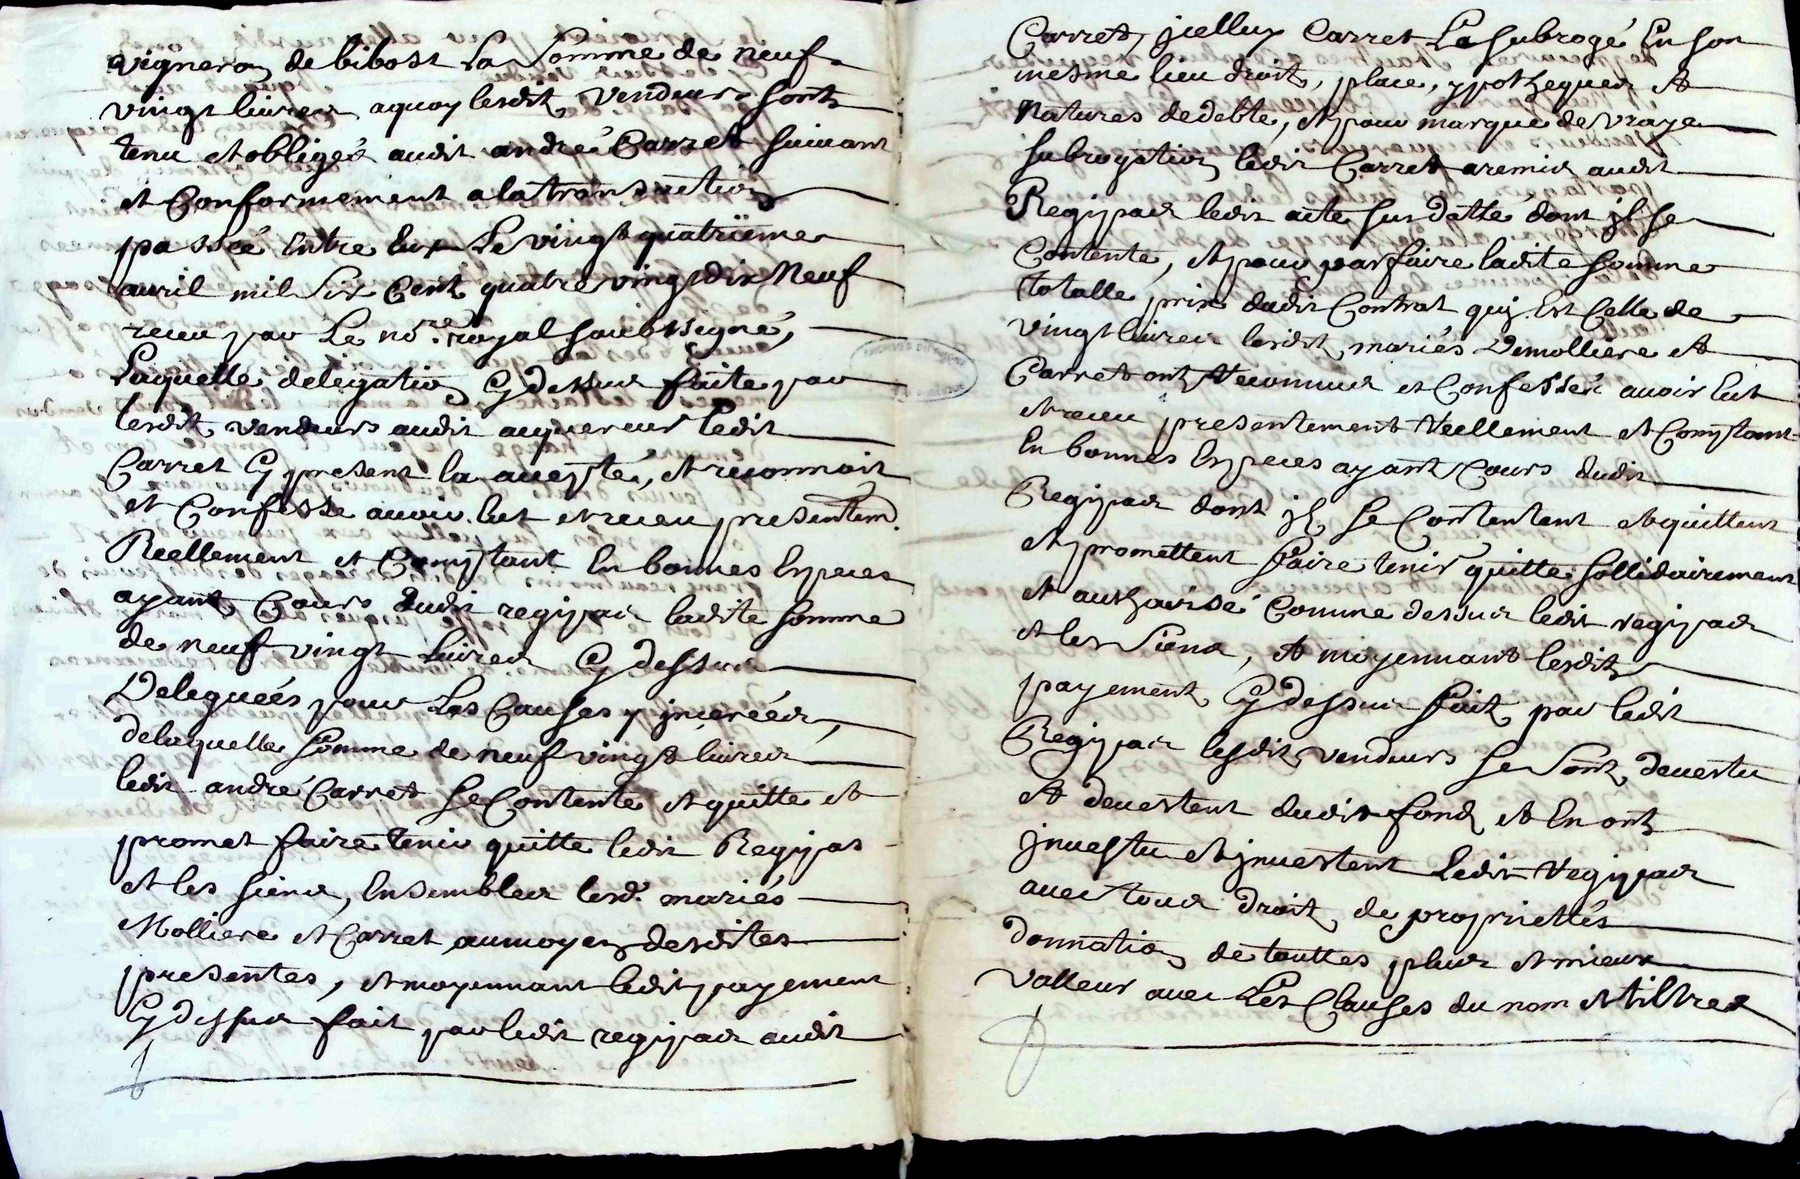 vigneron de bibost La Somme de neuf
vingt livres aquoy lesdit vendeurs sont
tenu et obligés audit andré Carret suivant
et Conformement a la transaction
passée Entre Eux Le vingt quatrième
avril mil Six Cent quatre vingt dix Neuf
receu par Le nore. royal soubssigné,
Laquelle delegation Cy dessus faite par
lesdit vendeurs audit acquereur ledit
Carret Cy present la acceptée, et reconnoit
et Confesse avoir Eut et receu presentem.
Reellement et Comptant En bonnes Especes
ayant Cours dudit regipas ladite somme
de neuf vingt Livres Cy dessus
Deleguées pour Les Causes y jnserées,
de laquelle somme de neuf vingt livres
ledit andré Carret Se Contente et quitte et
promet faire tenir quitte ledit Regipas
et les siens, Ensembles lesd. mariés
Molliere et Carret au moyen desdites
presentes, et moyennant ledit payement
Cy dessus fait par ledit regipas audit
Carret, jcelluy Carret La subrogé En son
mesme lieu droit, place, ypotheques et
Natures de debte, et pour marque de vraye
subrogation ledit Carret a remis audit
Regipas ledit acte sus datté dont jl se
Contente, et pour parfaire ladite somme
totalle prix dudit Contrat quj Est Celle de
vingt livres lesdit mariés Demolliere et
Carret ont Reconnus et Confessés avoir Eut
et receu presentement Reellement et Comptant
En bonnes Especes ayant Cours dudit
Regipas dont jl se Contentent et quittent
et promettent faire tenir quitte sollidairement
et authorisée Comme dessus ledit regipas
et les Siens, et moyennant lesdit
payement Cy dessus fait par ledit
Regipas lesdit vendeurs se sont devestu
et devestent dudit fond et En ont
jnvestu et jnvestent Ledit Regipas
avec tous droit de proprietés
donnation de touttes plus et mieux
valleur avec Les Clauses du nom et tiltres